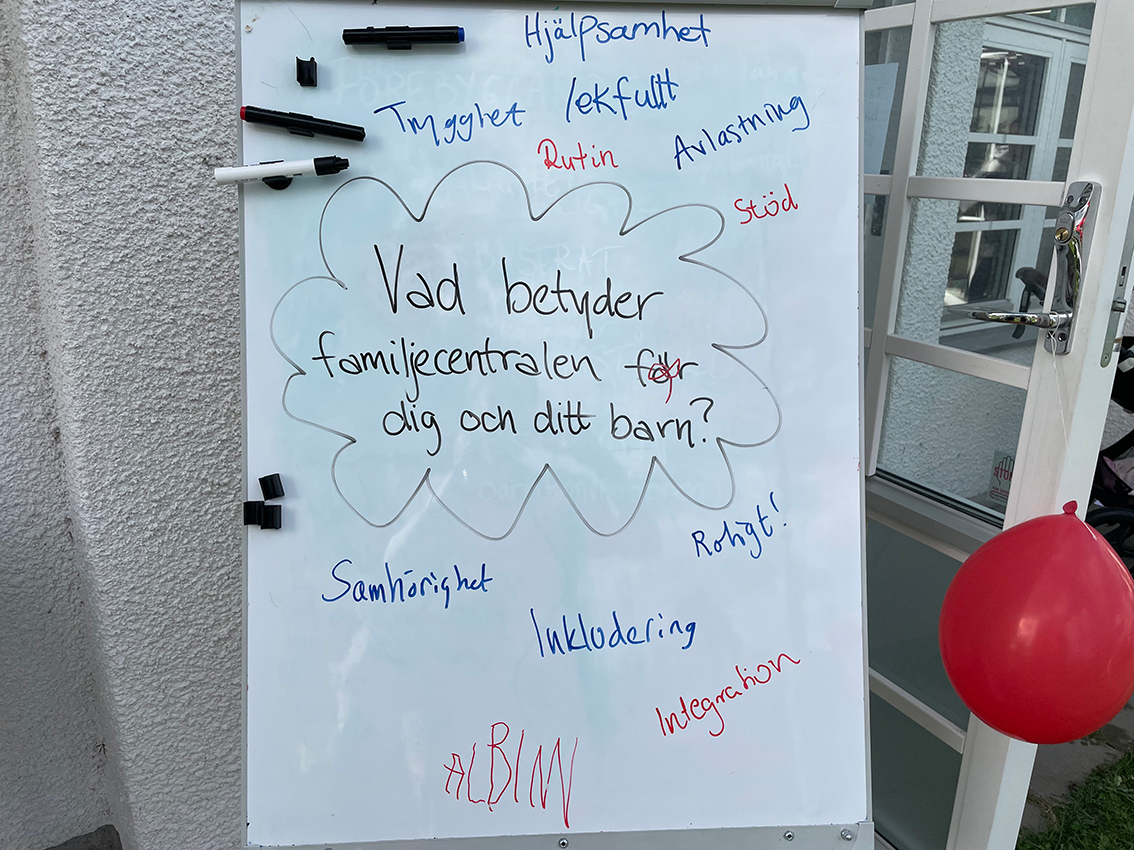 Hjälpsamhet
Trygghet
lekfullt
Avlastning
Rutin
Stöd
Vad betyder
familjecentralen för
dig och ditt barn?
Roligt!
Samhörighet
Inkludering
Integration
ALBIN
STOP